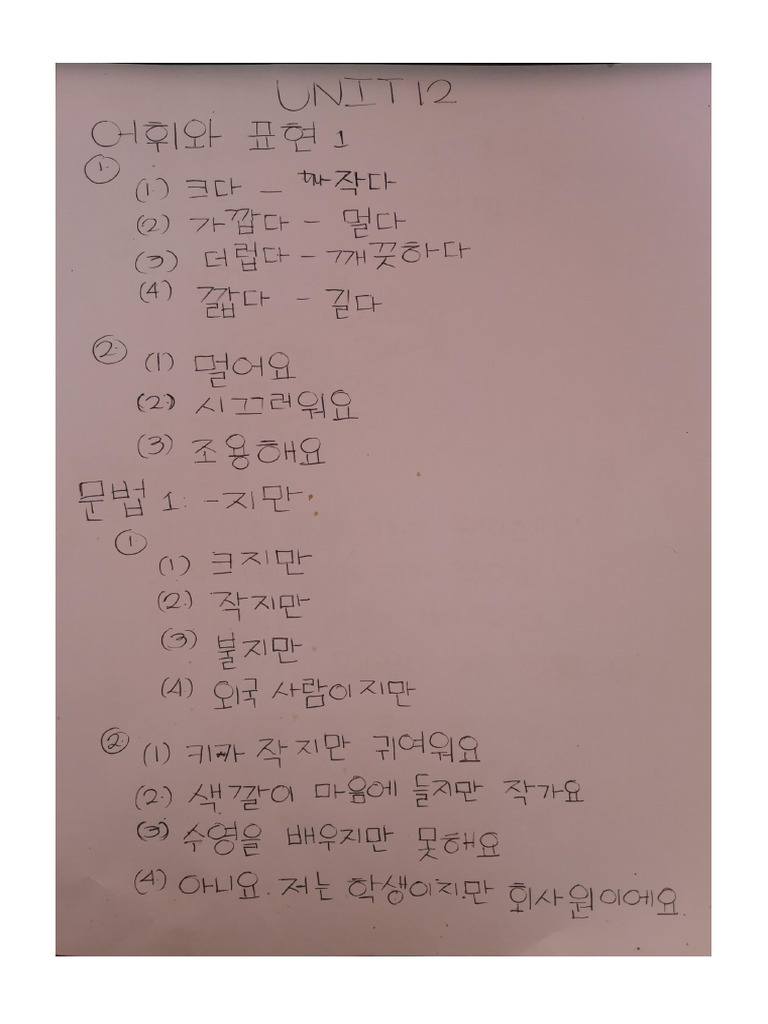 UNIT 12
어휘와 표현 1
1. (1.) 크다 - 작다
(2) 가깝다 - 멀다
(3) 더럽다 - 깨끗하다
(4) 짧다 - 길다
2. (1) 멀어요
(2.) 시끄러워요
(3) 조용해요
문법 1: -지만
1. (1) 크지만
(2.) 작지만
(3) 불지만
(4) 외국 사람이지만
2. (1) 키가 작지만 귀여워요
(2.) 색깔이 마음에 들지만 작가요
(3) 수영을 배우지만 못해요
(4.) 아니요. 저는 학생이지만 회사원이에요.